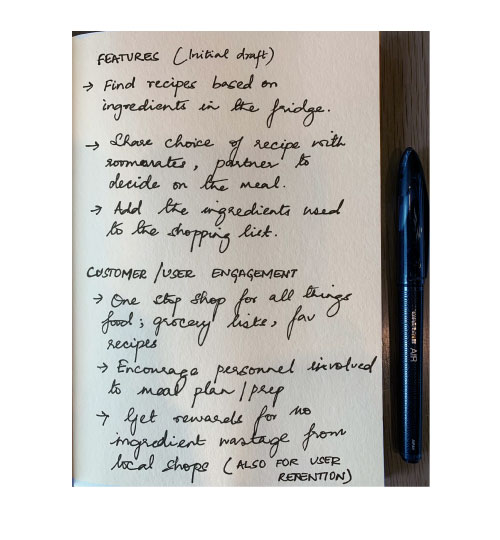 FEATURES (Initial draft)
→ Find recipes based on
ingredients in the fridge.
→ Share choice of recipe with
roommates, partner to
decide on the meal.
→ Add the ingredients used
to the shopping list.
CUSTOMER/USER ENGAGEMENT
→ One stop shop for all things
food; grocery lists, fav
recipes
→ Encourage personnel involved
to meal plan/prep
→ Get rewards for no
ingredient wastage from
local shops (ALSO FOR USER
RETENTION)
AIR